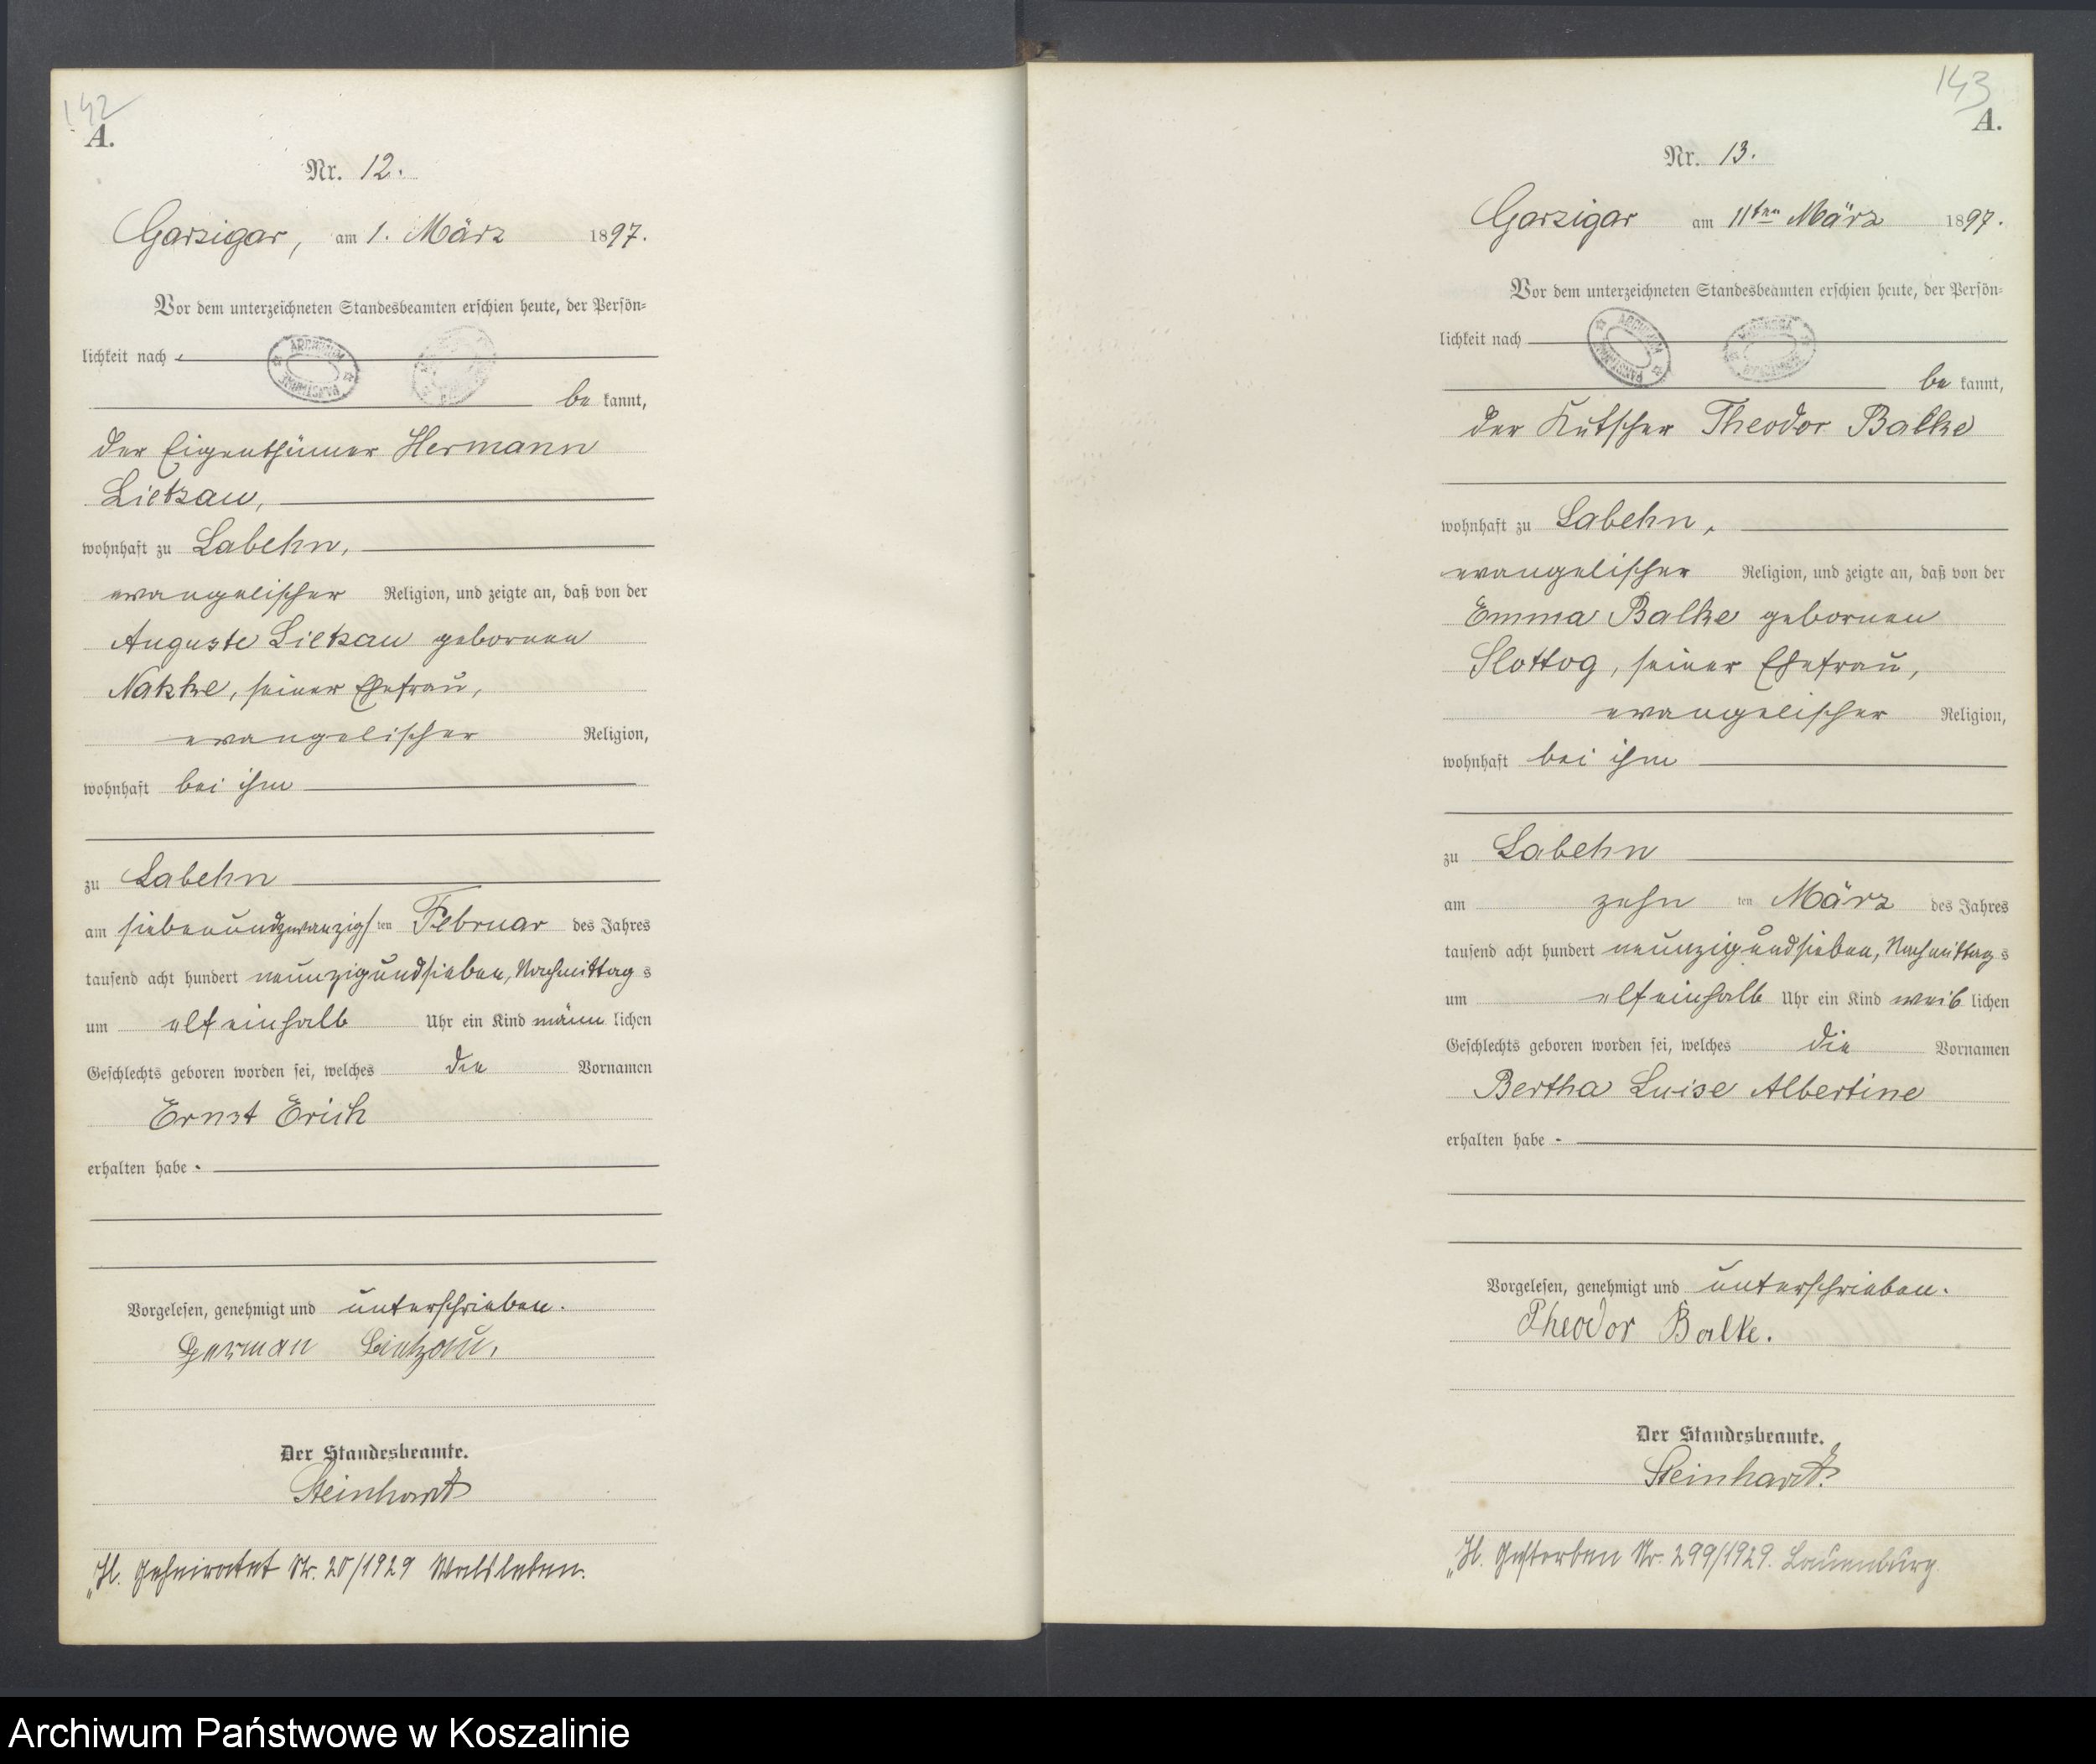 142
A.
Nr. 12.
Garzigar, am 1. März 1897.
Vor dem unterzeichneten Standesbeamten erschien heute, der Persön-
lichkeit nach
be kannt,
der Eigenthümer Hermann
Lietzau,
wohnhaft zu Labehn,
evangelischer Religion, und zeigte an, daß von der
Auguste Lietzau gebornen
Natzke, seiner Ehefrau,
evangelischer Religion,
wohnhaft bei ihm
zu Labehn
am siebenundzwanzigs ten Februar des Jahres
tausend acht hundert neunzigundsieben, Nachmittag s
um elfeinhalb Uhr ein Kind männ lichen
Geschlechts geboren worden sei, welches die Vornamen
Ernst Erich
erhalten habe.
Vorgelesen, genehmigt und unterschrieben.
Herman Lietzau.
Der Standesbeamte.
Steinhardt
"H. Geheiratet Nr. 20/1929 Waldleben.
143
A.
Nr. 13.
Garzigar am 11ten März 1897.
Vor dem unterzeichneten Standesbeamten erschien heute, der Persön-
lichkeit nach
be kannt,
der Kutscher Theodor Balke
wohnhaft zu Labehn,
evangelischer Religion, und zeigte an, daß von der
Emma Balke gebornen
Slottog, seiner Ehefrau,
evangelischer Religion,
wohnhaft bei ihm
zu Labehn
am zehn ten März des Jahres
tausend acht hundert neunzigundsieben, Nachmittag s
um elfeinhalb Uhr ein Kind weib lichen
Geschlechts geboren worden sei, welches die Vornamen
Bertha Luise Albertine
erhalten habe.
Vorgelesen, genehmigt und unterschrieben.
Theodor Balke.
Der Standesbeamte.
Steinhardt.
"H. Gestorben Nr. 299/1929. Lauenburg.
Archiwum Państwowe w Koszalinie